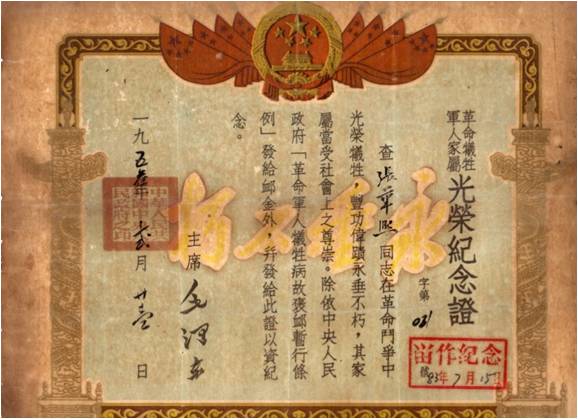 革命犧牲
軍人家屬
光榮紀念證
字第021號
查張華熙同志在革命鬥爭中
光榮犧牲,豐功偉蹟永垂不朽,其家
屬當受社會上之尊崇。除依中央人民
政府「革命軍人犧牲病故褒卹暫行條
例」發給卹金外,幷發給此證以資紀
念。
主席 毛澤东
一九五 年 月 日
永垂不朽
留作紀念
83年7月15日